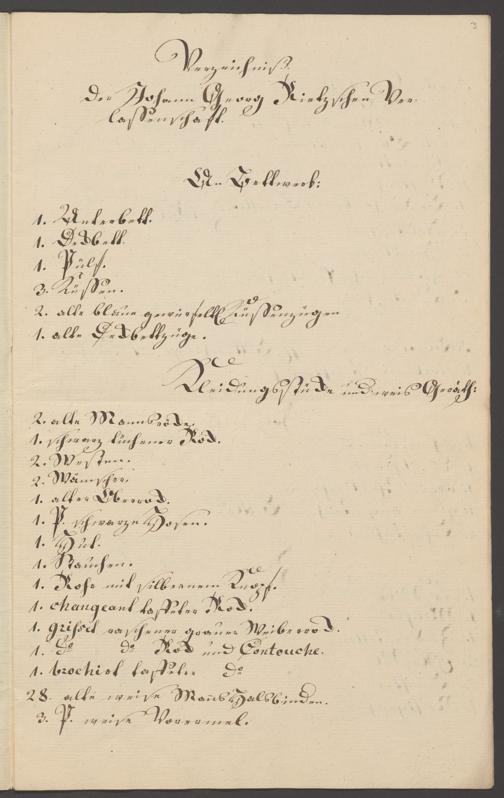 3
Verzeichniß
Der Johann Georg Kietzschen Ver-
lassenschafft.
An Bettwerk:
1. Unterbett.
1. Deckbett.
1. Pülf.
3. Küssen.
2. alte blaue gewürfelte Küssenzügen
1. alte Deckbettzüge.
Kleidungsstücke und weis Geräth:
2. alte Mannsröcke.
1. schwarz tuchener Rock.
2. Westen.
2. Wämscher.
1. alter Oberrock.
1. P. schwarze Hosen.
1. Hut.
1. Stauchen.
1. Rohr mit silbernem Knopf.
1. changeant taffeter Rock.
1. raschener grauer Weiberrock.
1. do do Rock und Contouche.
1. taffeter do
28. alte weise Manns Halsbinden.
3. P. weise Vorermel.